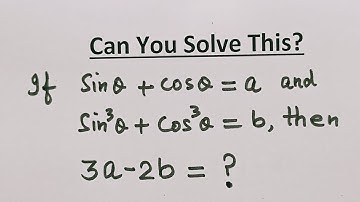 Can You Solve This?
If Sinθ + cosθ = a and
Sin³θ + Cos³θ = b, then
3a-2b = ?